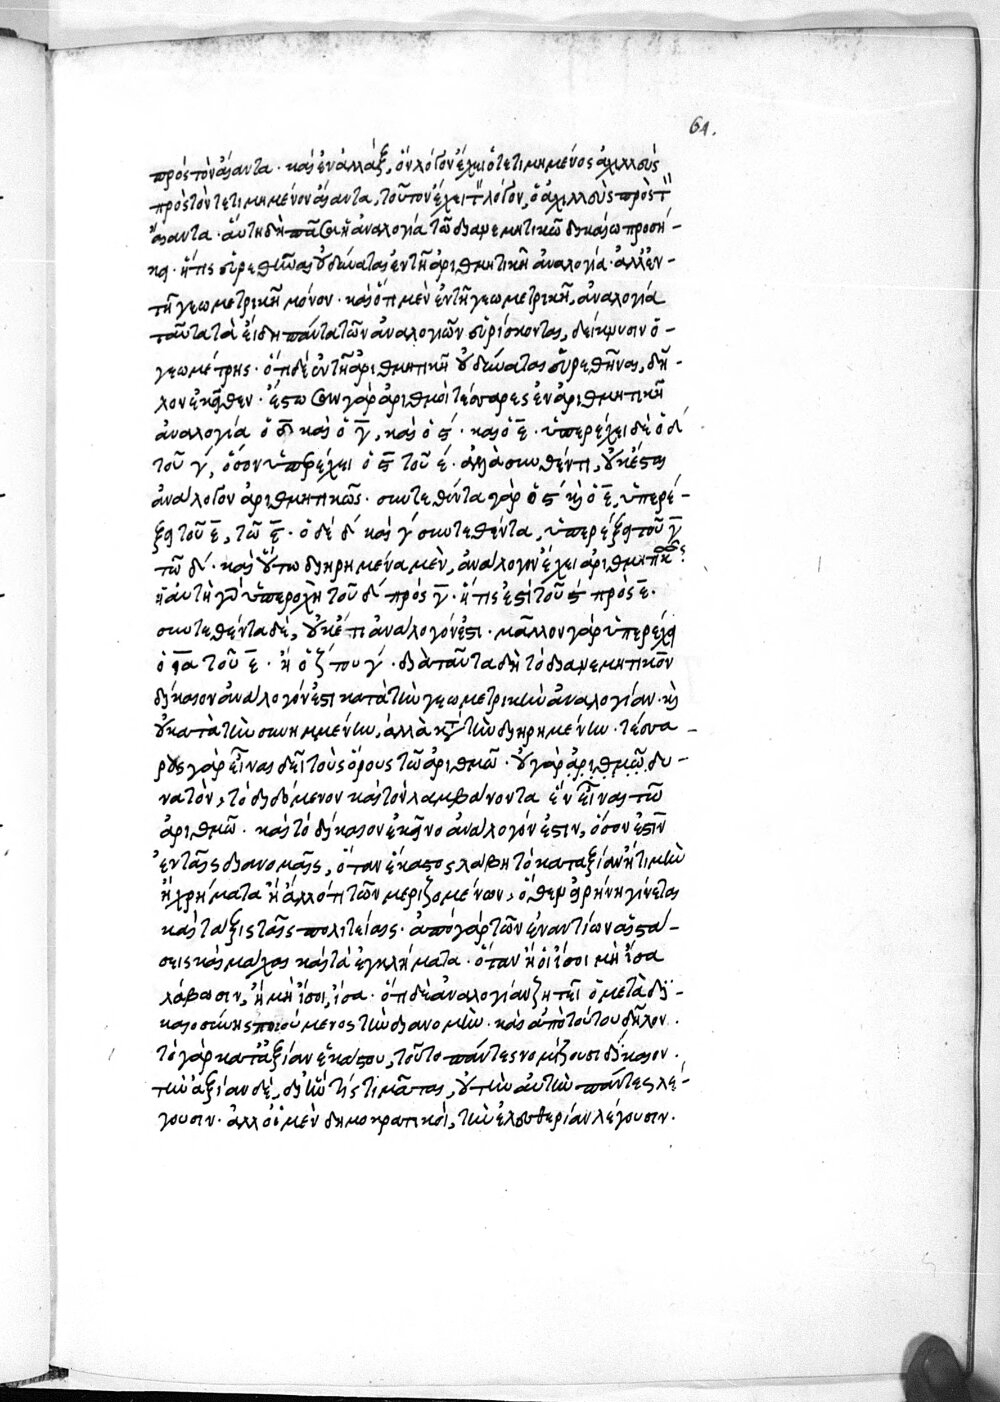 61.
πρὸς τὸν αἴαντα · καὶ ἐναλλάξ, ὃν λόγον ἔχει ὁ τετιμημένος ἀχιλλεὺς
πρὸς τὸν τετιμημένον αἴαντα, τοῦτον ἔχει τὸν λόγον, ὁ ἀχιλλεὺς πρὸς τὸν
αἴαντα · αὕτη δὴ πᾶσι ἡ ἀναλογία τῶ διανεμητικῶ δικαίω προσή-
κει · ἥτις εὑρεθῆναι οὐ δύναται ἐν τῆ ἀριθμητικῆ ἀναλογία · ἀλλ' ἐν
τῆ γεωμετρικῆ μόνον · καὶ ὅτι μὲν ἐν τῆ γεωμετρικῆ, ἀναλογία
ταῦτα τὰ εἴδη πάντα τῶν ἀναλογιῶν εὑρίσκονται, δείκνυσιν ὁ
γεωμέτρης · ὅτι δὲ ἐν τῆ ἀριθμητικῆ οὐ δύναται εὑρεθῆναι, δῆ-
λον ἐκεῖθεν · ἔστωσαν γὰρ ἀριθμοὶ τέσσαρες ἐν ἀριθμητικῆ
ἀναλογία ὁ δ καὶ ὁ γ, καὶ ὁ ς · καὶ ὁ ε · ὑπερέχει δὲ ὁ δ
τοῦ γ, ὅσον ὑπερέχει ὁ ς τοῦ ε · ἀλλὰ συντεθέντι, οὐκέτι
ἀνάλογον ἀριθμητικῶς · συντεθέντα γὰρ ὁ ς καὶ ὁ ε, ὑπερέ-
ξει τοῦ ε, τῶ ε · ὁ δὲ δ καὶ γ συντεθέντα, ὑπερέξει τοῦ γ
τῶ δ · καὶ οὕτω διηρημένα μὲν, ἀναλογίαν ἔχει ἀριθμητικῶς
ἡ αὐτὴ γὰρ ὑπεροχὴ τοῦ δ πρὸς γ · ἥτις ἐστὶ τοῦ ς πρὸς ε ·
συντεθέντα δέ, οὐκέτι ἀνάλογόν ἐστι · μᾶλλον γὰρ ὑπερέχει
ὁ ια τοῦ ε · ἢ ὁ ζ του γ · διὰ ταῦτα δὴ τὸ διανεμητικὸν
δίκαιον ἀνάλογόν ἐστι κατὰ τὴν γεωμετρικὴν ἀναλογίαν · καὶ
οὐ κατὰ τὴν συνημμένην, ἀλλὰ κατὰ τὴν διηρημένην · τέσσα-
ρους γὰρ εἶναι δεῖ τοὺς ὅρους τῶ ἀριθμῶ · οὐ γὰρ ἀριθμῶ δυ-
νατὸν, τὸ διδόμενον καὶ τὸν λαμβάνοντα ἓν εἶναι τῶ
ἀριθμῶ · καὶ τὸ δίκαιον ἐκεῖνο ἀνάλογόν ἐστιν, ὅσον ἐστὶν
ἐν ταῖς διανομαῖς, ὅταν ἕκαστος λάβη τὸ κατ' ἀξίαν ἢ τιμὴν
ἢ χρήματα ἢ ἄλλό τι τῶν μεριζομένων, ὅθεν εἰρήνη γίνεται
καὶ τάξις ταῖς πολιτείαις · ἀπὸ γὰρ τῶν ἐναντίων αἱ στά-
σεις καὶ μάχαι καὶ τὰ ἐγκλήματα · ὅταν ἢ οἱ ἴσοι μὴ ἴσα
λάβωσιν, ἢ μὴ ἴσοι, ἴσα · ὅτι δὲ ἀναλογίαν ζητεῖ ὁ μετὰ δι-
καιοσύνης ποιούμενος τὴν διανομὴν · καὶ ἀπὸ τούτου δῆλον ·
τὸ γὰρ κατ' ἀξίαν ἑκάστου, τοῦτο πάντες νομίζουσι δίκαιον ·
τὴν ἀξίαν δέ, δι' ἥν τίς τιμᾶται, οὐ τὴν αὐτὴν πάντες λέ-
γουσιν · ἀλλ' οἱ μὲν δημοκρατικοὶ, τὴν ἐλευθερίαν λέγουσιν ·